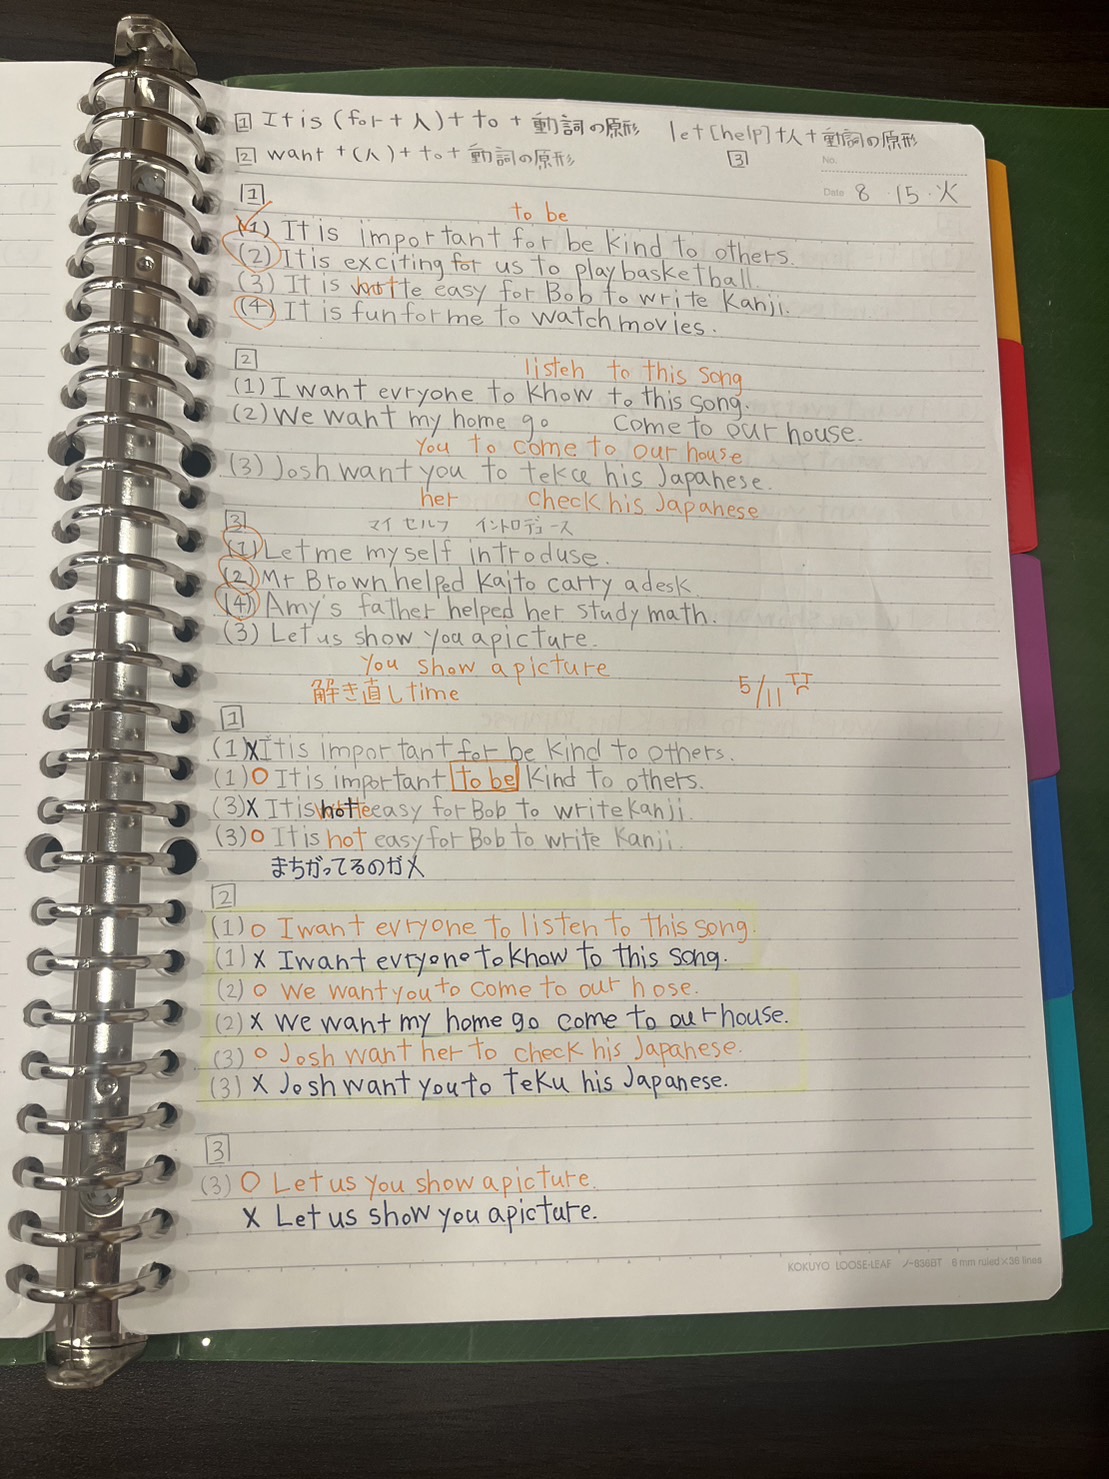 1 It is (for + 人) + to + 動詞の原形 let [help] + 人 + 動詞の原形
2 want + (人) + to + 動詞の原形 3
No.
Date 8 ・15・火
1
to be
(1) It is important for be kind to others.
(2) It is exciting for us to play basketball.
(3) It is not easy for Bob to write Kanji.
(4) It is fun for me to watch movies.
2
listen to this song
(1) I want evryone to know to this song.
(2) We want my home go come to our house.
you to come to our house
(3) Josh want you to teke his Japanese.
her check his Japanese
3 マイセルフ イントロデュース
(1) Let me myself introduse.
(2) Mr Brown helped Kaito carry a desk.
(4) Amy's father helped her study math.
(3) Let us show you a picture.
you show a picture
解き直し time 5/11
1
(1) X It is important for be kind to others.
(1) O It is important to be kind to others.
(3) X It is not easy for Bob to write Kanji.
(3) O It is not easy for Bob to write Kanji.
まちがってるのが X
2
(1) O I want evryone to listen to this song.
(1) X I want evryone to know to this song.
(2) O We want you to come to our hose.
(2) X We want my home go come to our house.
(3) O Josh want her to check his Japanese.
(3) X Josh want you to teku his Japanese.
3
(3) O Let us you show a picture.
X Let us show you a picture.
KOKUYO LOOSE-LEAF ノ-836BT 6 mm ruled×36 lines